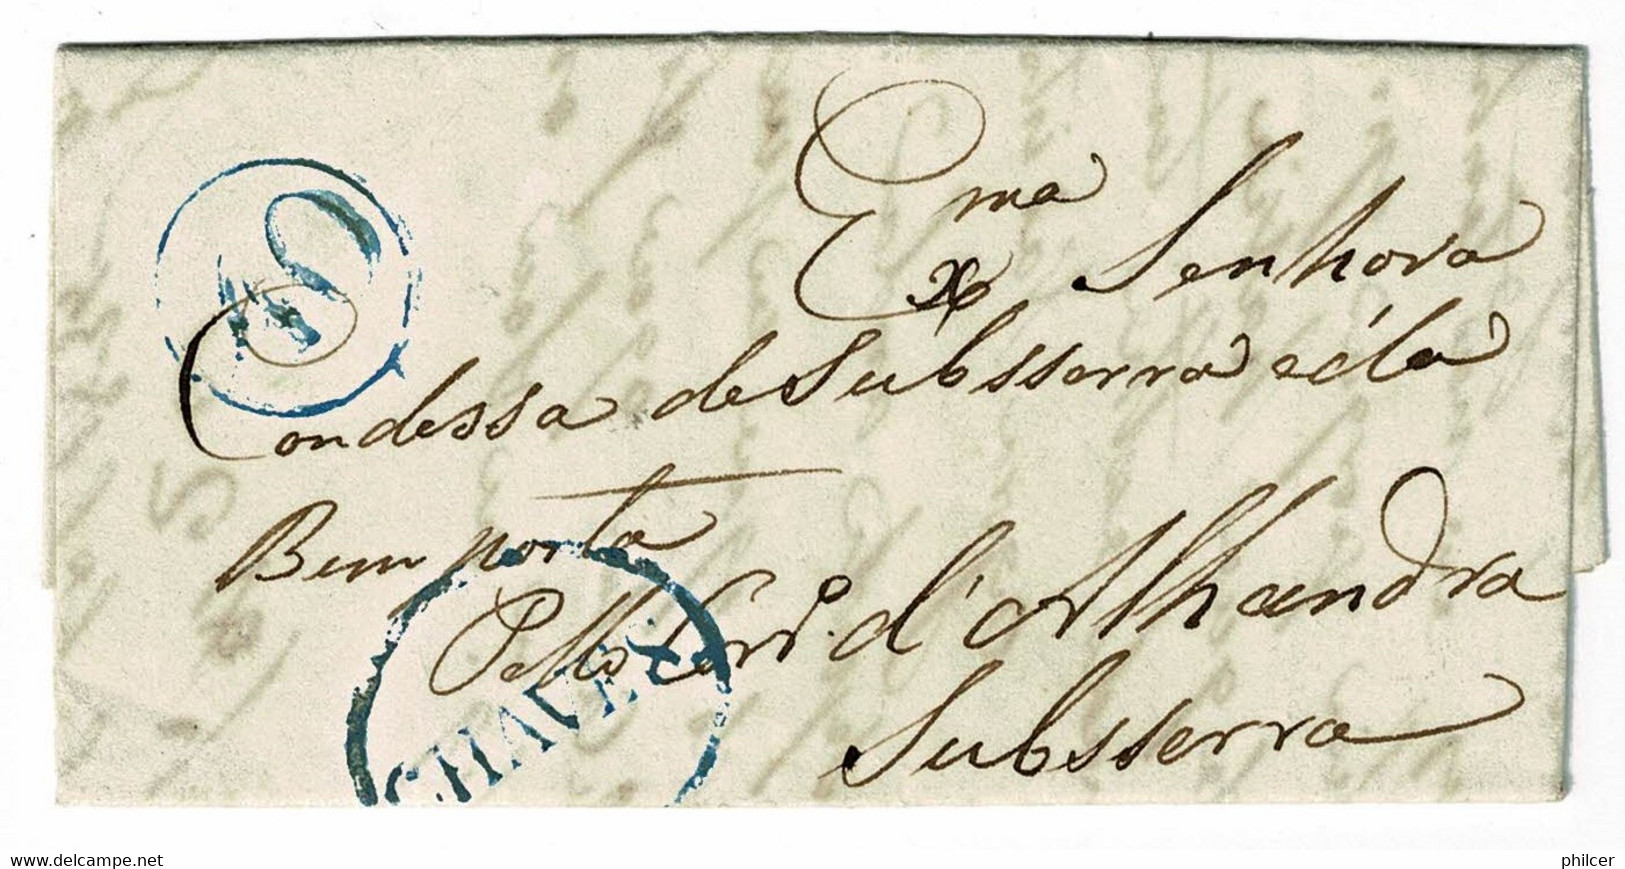 40
Ex^ma Senhora
Condessa de Subsserra e cla
Bem posta
Pello Corr.^o d'Alhandra
Subsserra
CHAVES
www.delcampe.net
philcer